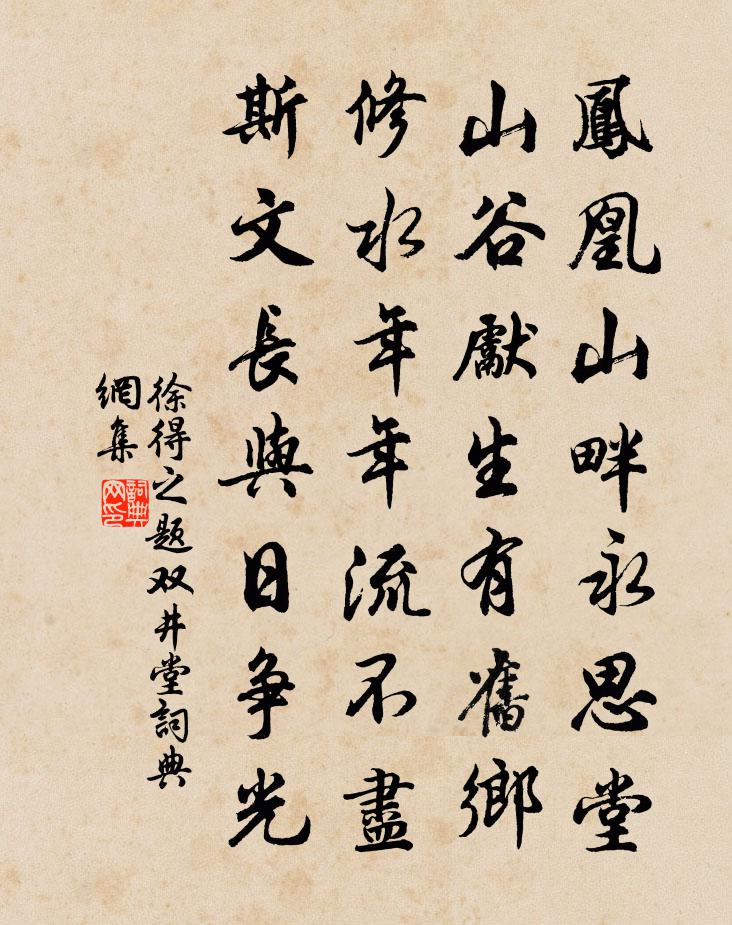 鳳凰山畔永思堂
山谷獻生有舊鄉
修水年年流不盡
斯文長與日争光
徐得之题双井堂詞典
網集
詞典
网印